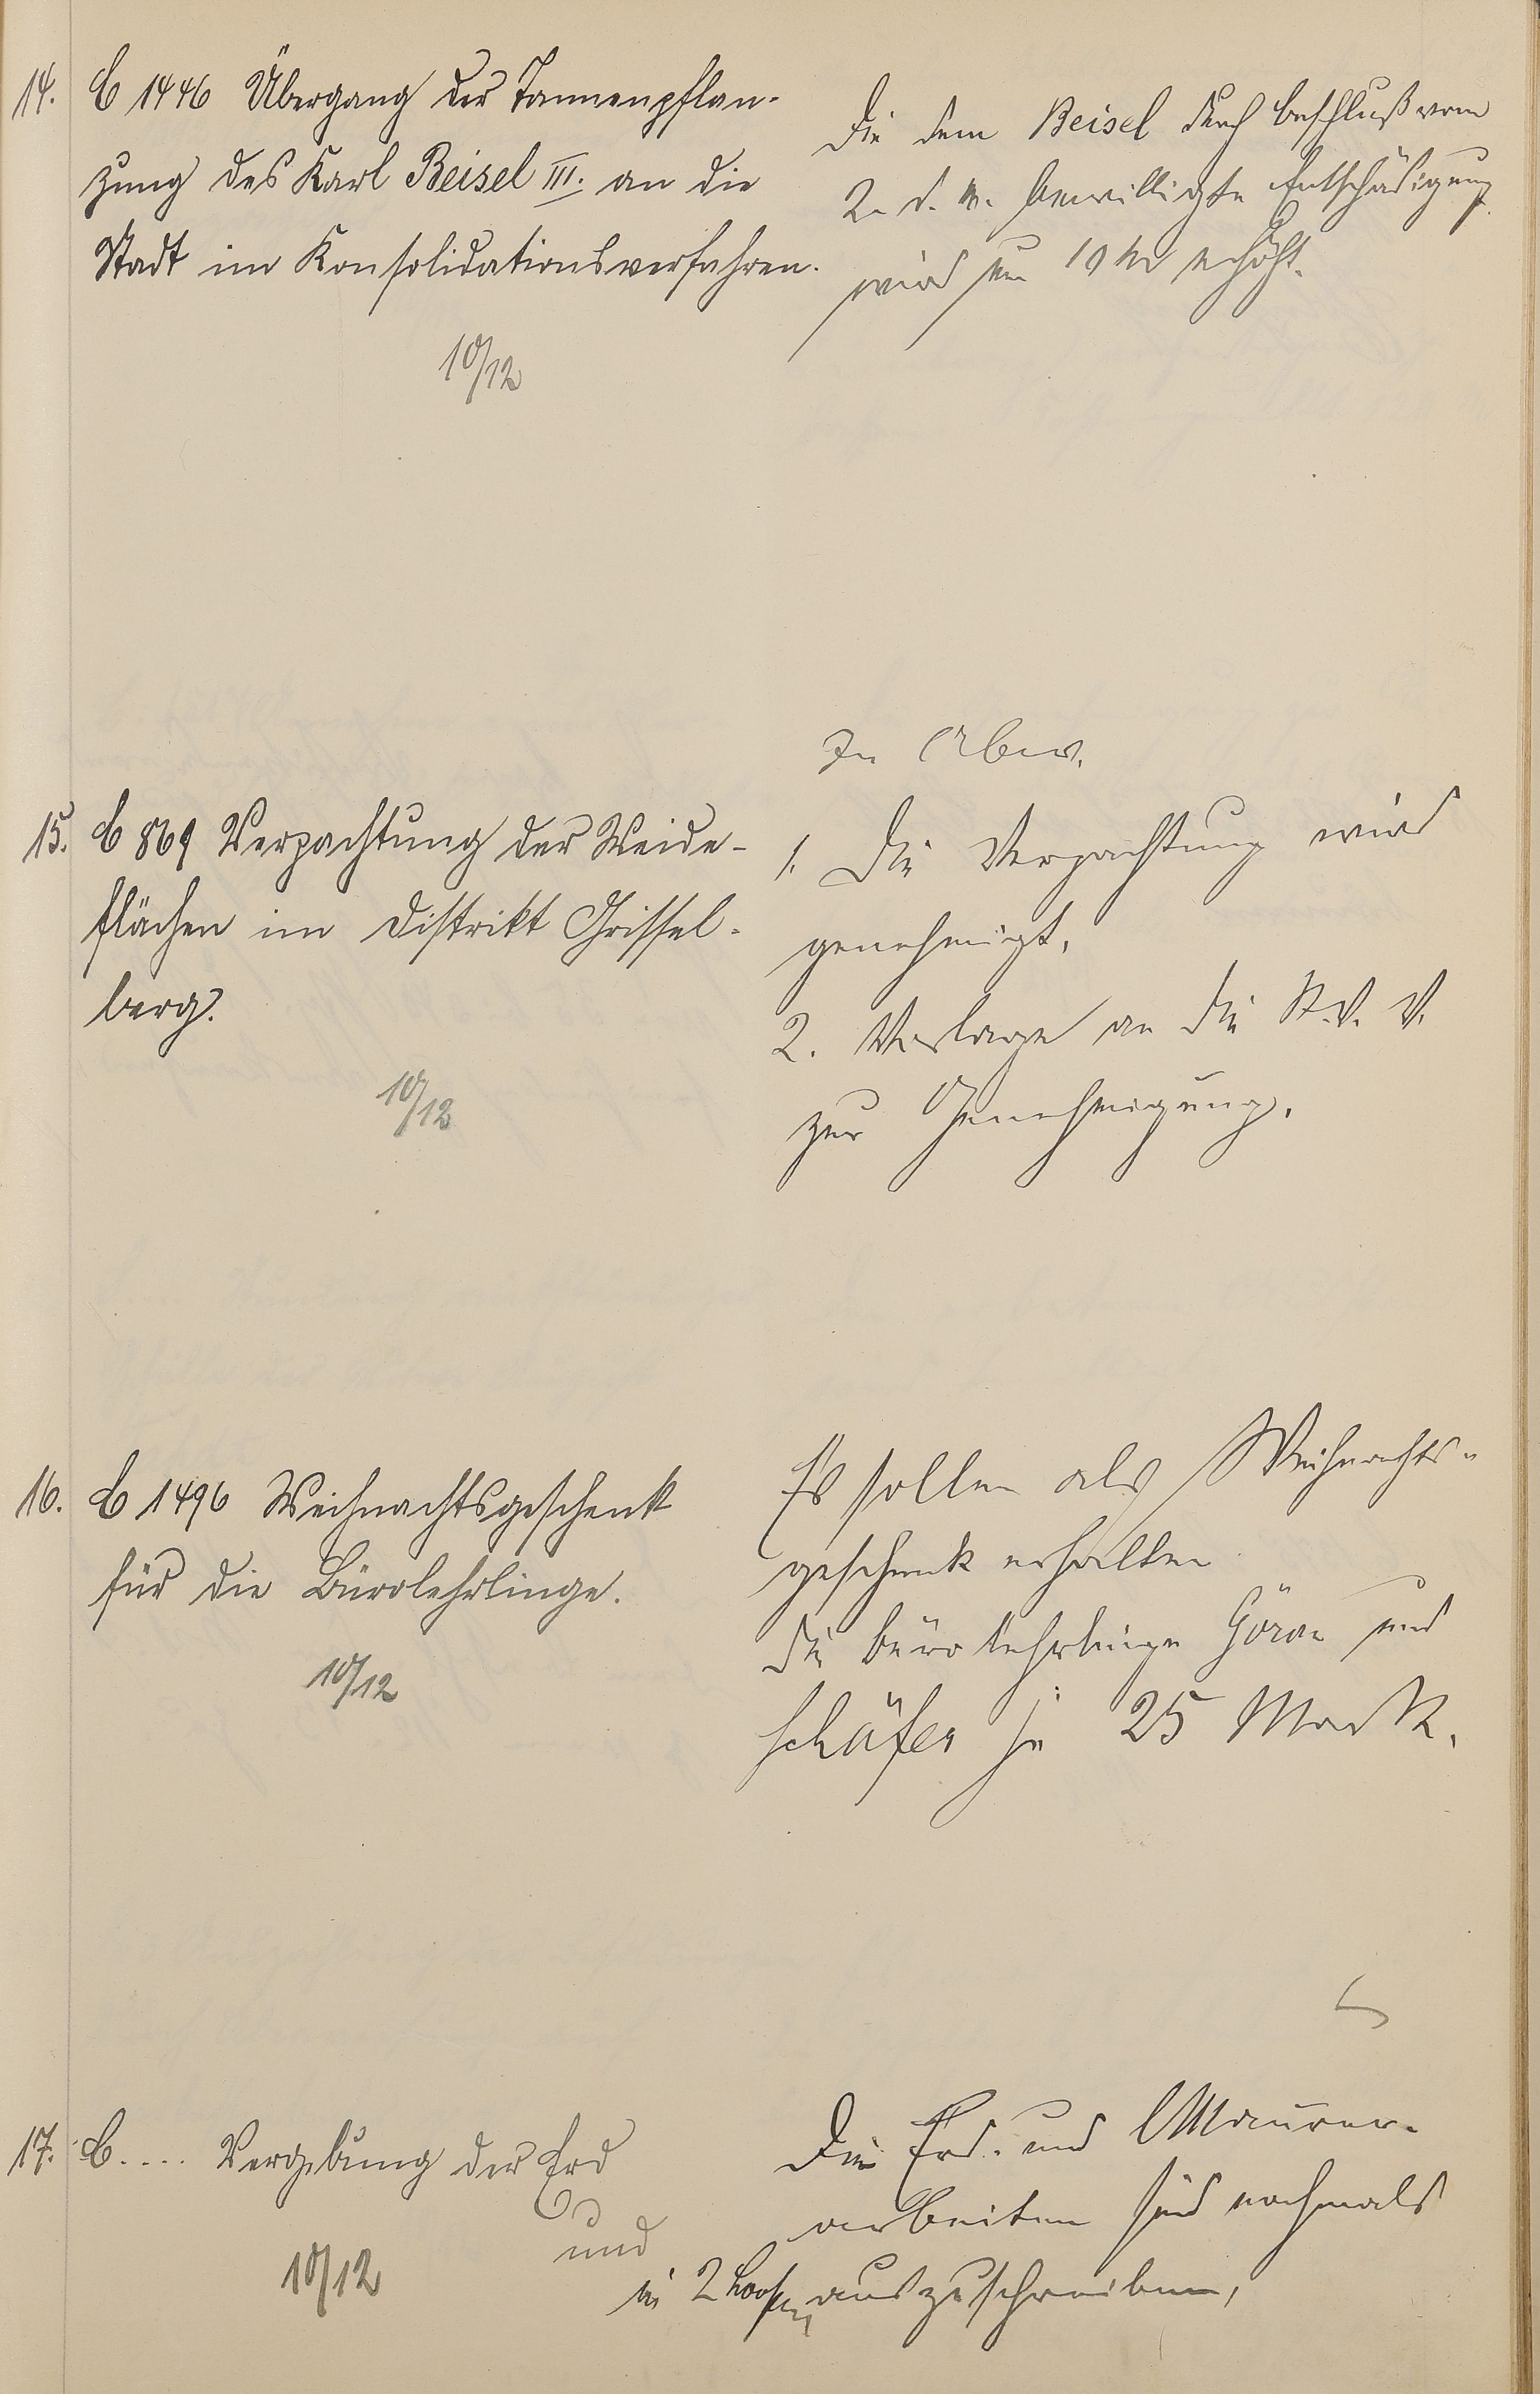 14. C 1446 Übergang der Tannenpflan-
zung des Karl Beisel III. an die
Stadt im Konsolidationsverfahren.
10/12
Die dem Beisel durch Beschluß vom
2. d. M. bewilligte Entschädigung
wird um 10 M erhöht.
15. C 869 Verpachtung der Weide-
flächen im Distrikt Grissel-
berg.
10/12
1. Die Verpachtung wird
genehmigt.
2. Vorlage an die St. V. V.
zur Genehmigung.
16. C 1496 Weihnachtsgeschenk
für die Bürolehrlinge.
10/12
Es sollen als Weihnachts-
geschenk erhalten
die Bürolehrlinge und
Schäfer je 25 Mark.
17. C.... Vergebung der Erd
und
10/12
Die Erd- und Maurer-
arbeiten sind nochmals
in 2 Loosen auszuschreiben,